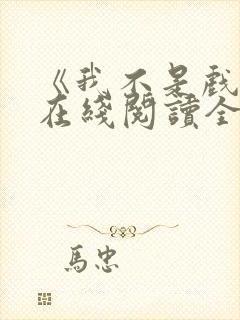 《我不是戲
在綫閱讀全
馬忠